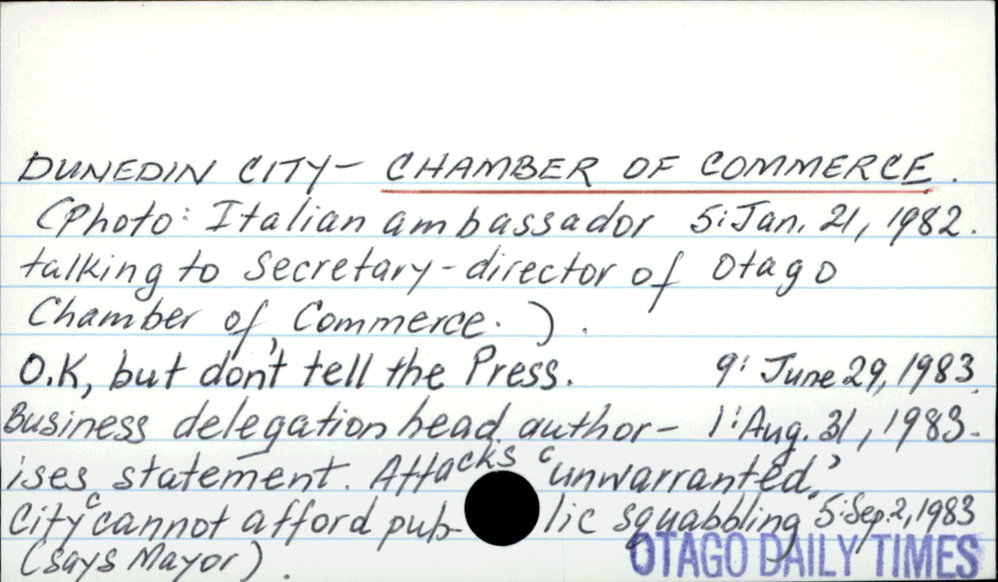 DUNEDIN CITY- CHAMBER OF COMMERCE.
(Photo: Italian ambassador 5: Jan. 21, 1982.
talking to Secretary-director of Otago
Chamber of Commerce.).
O.K, but don't tell the Press. 9: June 29, 1983.
Business delegation head author- 1: Aug. 31, 1983.
ises statement. Attacks 'unwarranted.'
City 'cannot afford public squabbling' 5: Sep. 2, 1983
(says Mayor).
OTAGO DAILY TIMES